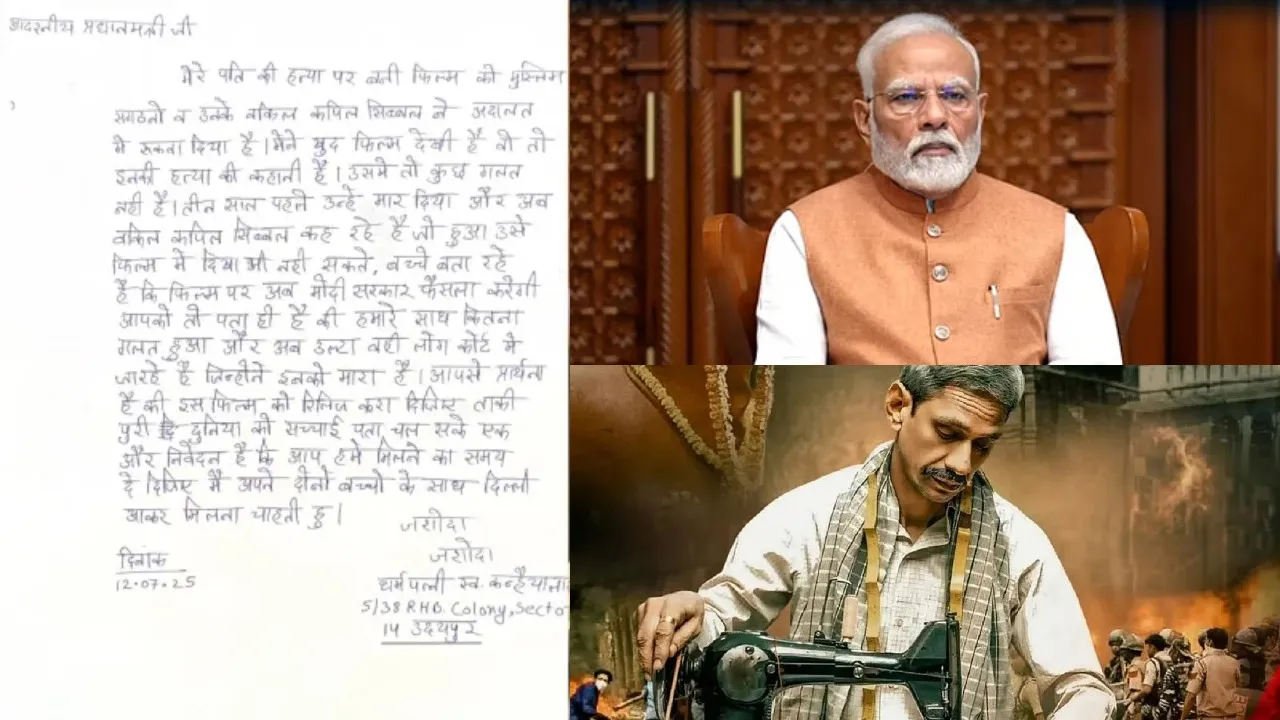 आदरनीय प्रधानमंत्री जी
मेरे पति की हत्या पर बनी फिल्म को मुस्लिम
संगठनो व उनके वकिल कपिल सिब्बल ने अदालत
मे रूकवा दिया है। मैने खुद फिल्म देखी है वो तो
इनकी हत्या की कहानी है। उसमे तो कुछ गलत
नही है। तीन साल पहले उन्हे मार दिया और अब
वकिल कपिल सिब्बल कह रहे है जो हुआ उसे
फिल्म मे दिखा भी नही सकते, बच्चे बता रहे
है कि फिल्म पर अब मोदी सरकार फैसला करेगी
आपको तो पता ही है की हमारे साथ कितना
गलत हुआ और अब उल्टा वही लोग कोर्ट मे
जारहे है जिन्होने इनको मारा है। आपसे प्रार्थना
है की इस फिल्म को रिलिज करा दिजिए ताकी
पुरी दुनिया को सच्चाई पता चल सके एक
और निवेदन है कि आप हमे मिलने का समय
दे दिजिए मै अपने दोनो बच्चो के साथ दिल्ली
आकर मिलना चाहती हु।
जशोदा
दिनांक
जशोदा
12.07.25
धर्मपत्नी स्व. कन्हैयाला
5/38 RHB. Colony, Secto
14 उदयपुर